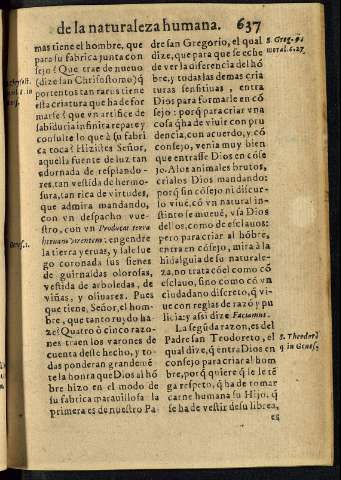 de la naturaleza humana. 637
mas tiene el hombre, que
para su fabrica junta con
sejo? Que trae de nueuo
(dize san Chrisostomo) q̃
portentos tan raros tiene
esta criatura que ha de for
marse? que vn artifice de
sabiduria infinita repare y
consulte lo que à su fabri
ca toca? Hizistes Señor,
aquella fuente de luz tan
adornada de resplando-
res, tan vestida de hermo-
sura, tan rica de virtudes,
que admira mandando,
con vn despacho vue-
stro, con vn Producat terra
herbam virentem: engendre
la tierra yeruas, y la le fue
go coronada sus sienes
de guirnaldas olorosas,
vestida de arboledas, de
viñas, y oliuares. Pues
que tiene, Señor, el hom-
bre, que tanto ruydo ha-
ze? Quatro ò cinco razo-
nes traen los varones de
cuenta deste hecho, y to-
das ponderan grandemé
te la honra que Dios al hó
bre hizo en el modo de
su fabrica marauillosa la
primera es de nuestro Pa-
dre san Gregorio, el qual
dize, que para que se eche
de ver la diferencia del hó
bre, y todas las demas cria
turas sensitiuas, entra
Dios para formarle en có
sejo: porq̃ para criar vna
cosa q̃ ha de viuir con pru
dencia, con acuerdo, y có
consejo, venia muy bien
que entrasse Dios en cóse
jo. A los animales brutos,
crialos Dios mandando:
porq̃ sin cósejo ni discur-
so viué, có vn natural in-
stinto se mueué, vsa Dios
dellos, como de esclauos:
pero para criar al hóbre,
entra en cósejo, mira à la
hidalguia de su naturale-
za, no trata cóel como có
esclauo, sino como có vn
ciudadano discreto, q̃ vi-
ue con reglas de razó y pu
licia: y assi dize Faciamus.
La segúda razon, es del
Padre san Teodoreto, el
qual dize, q̃ entra Dios en
consejo para criar al hom
bre, porq̃ quiere q̃ se le té
ga respeto, q̃ ha de tomar
carne humana su Hijo, q̃
se ha de vestir desu librea,
es
S. Greg. 9.
moral. c. 27.
Genes. 1.
S. Theodor.
q in Genes.